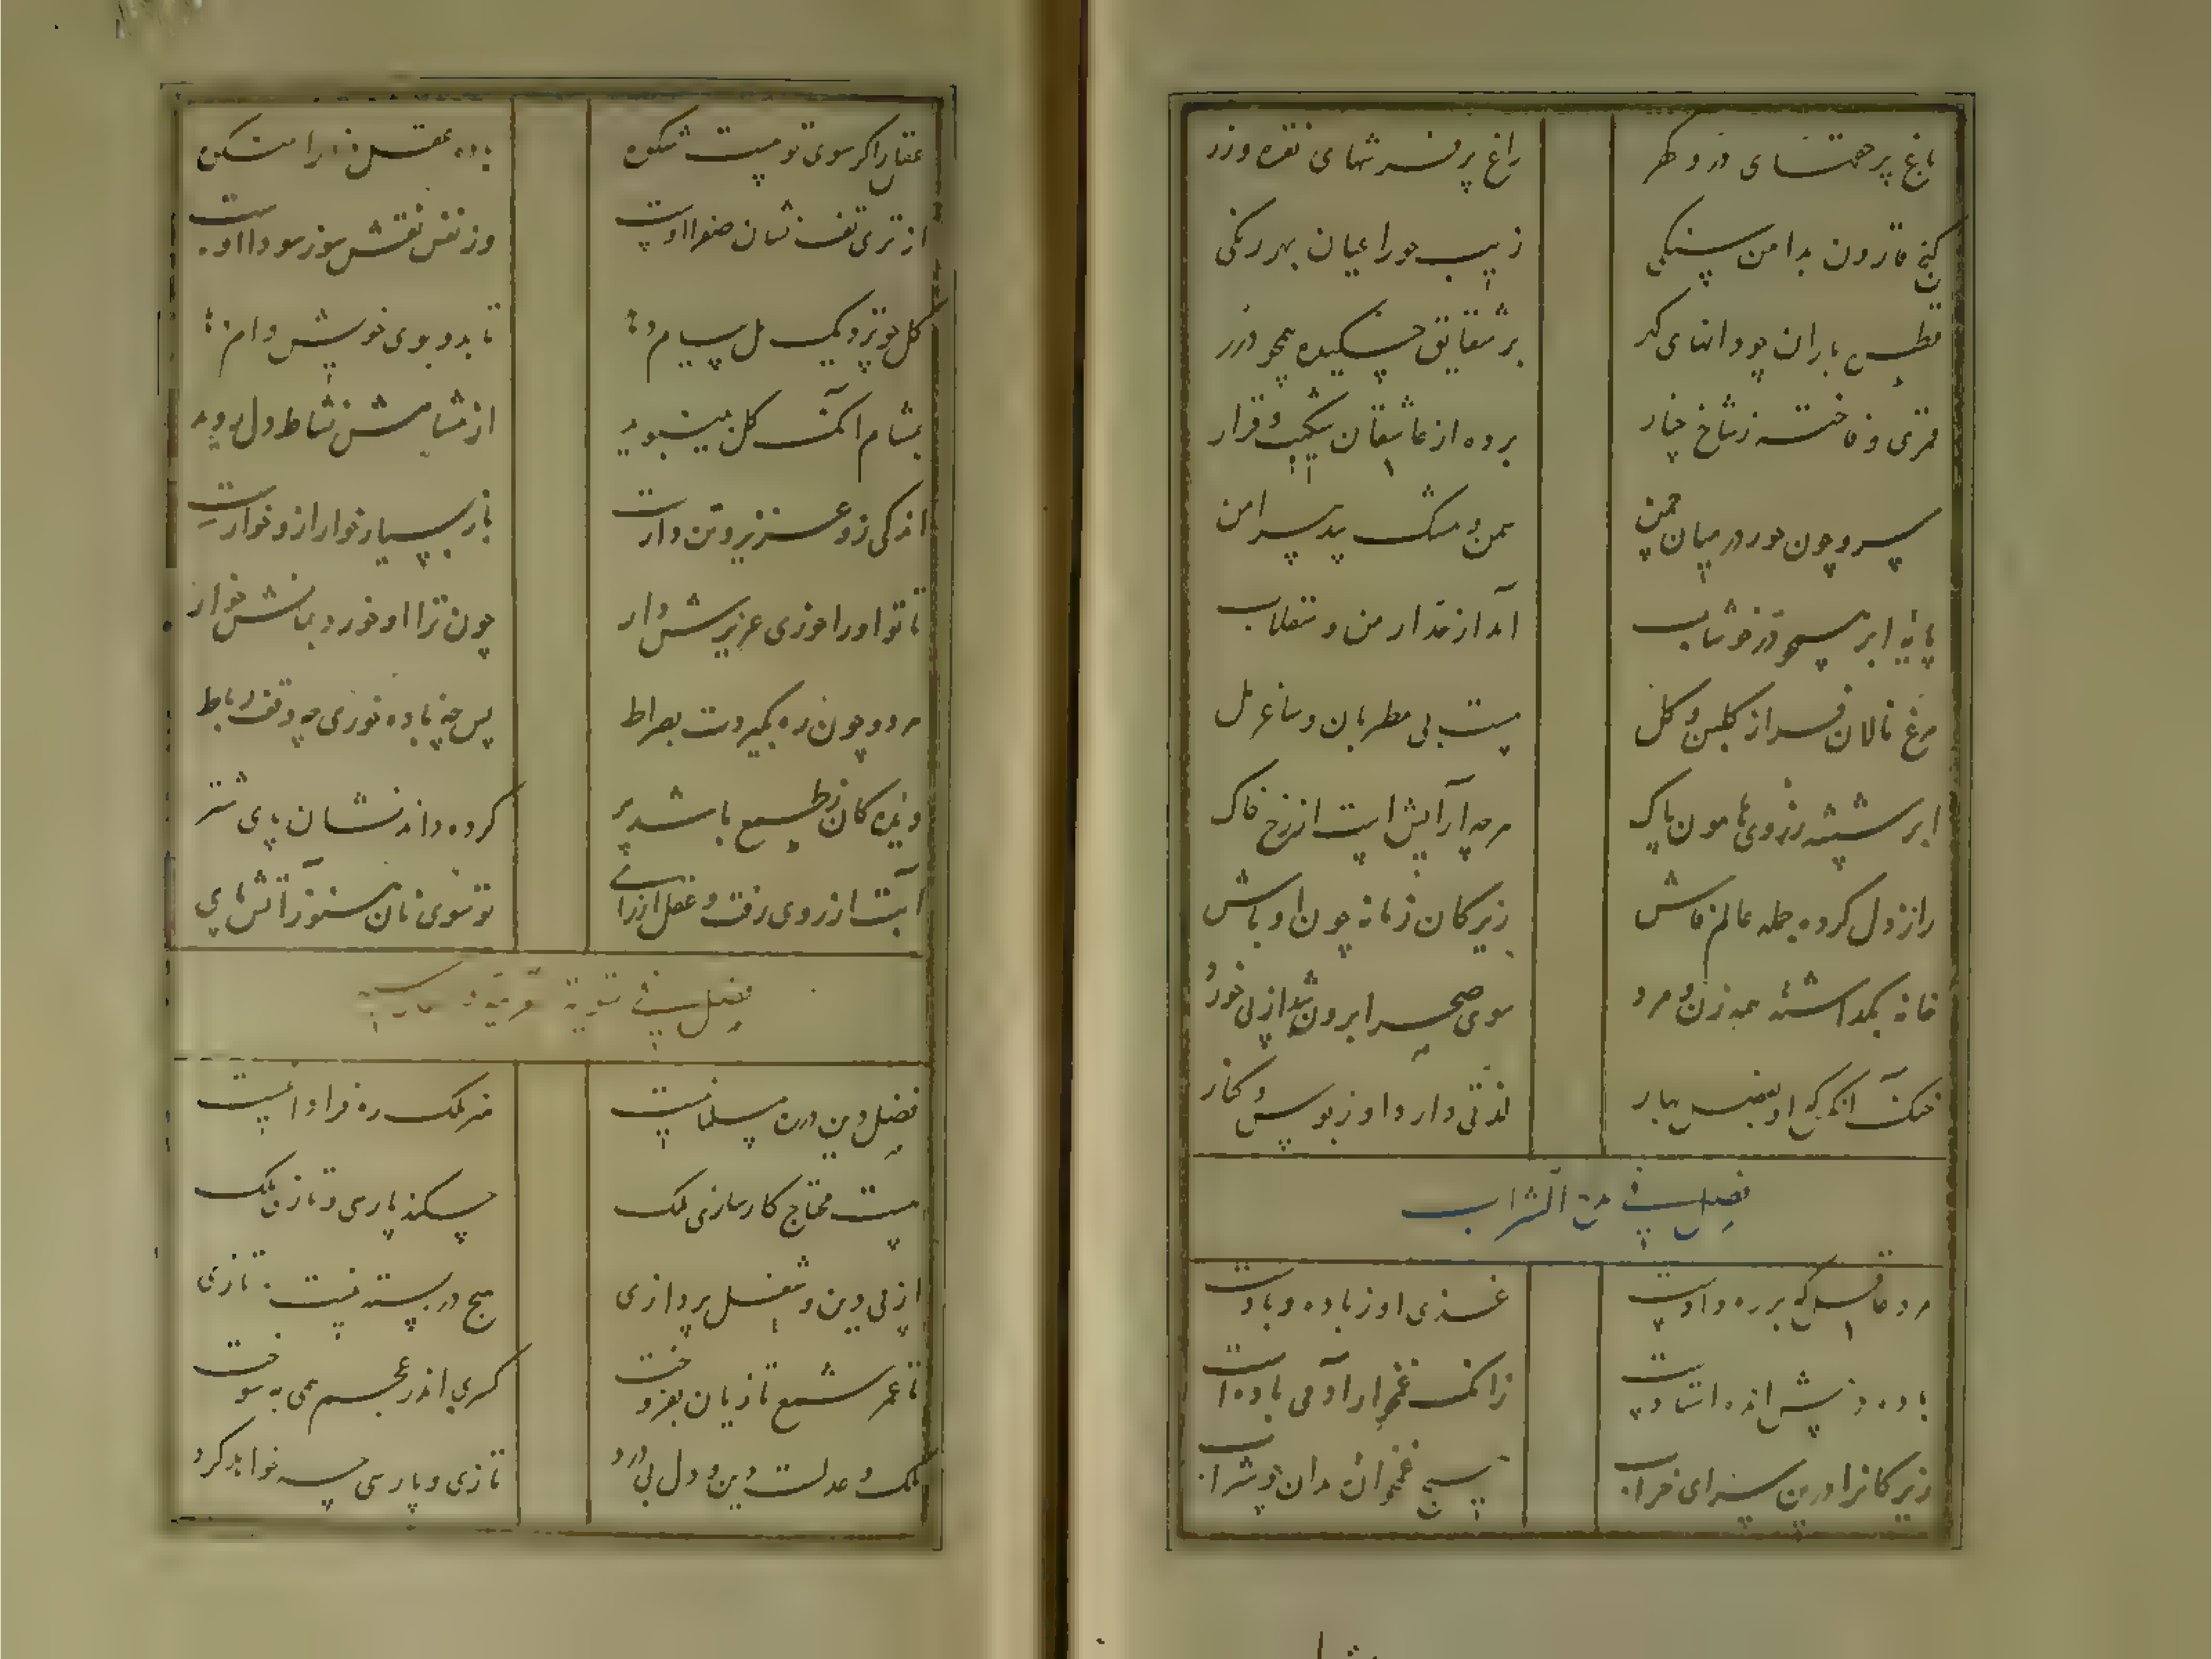 باغ پر حقهای در و گهر راغ پر فرشهای نقره و زر
گنج قارون بدامن سنگی زیب حورا عیان بهر رنگی
قطره باران چو دانهای گهر بر شقایق چکیده همچو درر
قمری و فاخته ز شاخ چنار برده از عاشقان شکیب و قرار
سرو چون حور در میان چمن سمن و مشک پیراهن
ابر همچو در خوشاب آمد از قدار من و سقلاب
مرغ نالان فراز گلبن و گل مست بی مطربان و ساغر مل
ابر شسته ز روی هامون پاک هرچه آرایش است از رخ خاک
راز دل کرده جمله عالم فاش زیرکان زمانه چون اوباش
خانه بگذاشته همه زن و مرد سوی صحرا برون شد از پی خورد
خنک آنکه که او بفصل بهار لذتی دارد او ز بوس و کنار
فصل فی الشراب
مرد عاقل که بر ره دادست غذی او ز باده و بادست
باده در پیش استادست زانک غمخوار آدمی باده است
زیرکانرا درین سرای خراب هیچ غمخواره مدان چو شراب
عقل را گر سوی تو هست شکوه باده عقل را مشکوه
از تری تف نشان صفرا اوست وز تفش نقش سوز سودا اوست
گل چو نزدیک مل پیام دهد تا بدو بوی خویش وام دهد
بمشام آنک گل همیبوید از مشامش نشاط دل بوید
اندکی زو عزیز و تن دارست باز بسیار خوار ازو خوارست
تا تو او را خوری عزیزش دار چون ترا او خورد بمانش خوار
مرد و چون ره بگیردت بصراط پس چه باده خوری چه وقف رباط
زیرکان ز طبع باشد پر کرده داند نشان پای شتر
آبت از روی رفت و عقل از رای تو سوی نان هنوز آتش‌های
فصل فی
فضل دین در مسلمانیست ملک ره فرا دانیست
نیست محتاج کارسازی ملک چکند پارسی و تازی ملک
از پی دین و شغل پردازی هیچ در بسته نیست در تازی
تا عمر شمع تازیان بفروخت کسری اندر عجم همی به سوخت
ملک و عدلست دین و دل بی درد تازی و پارسی چه خواهد کرد